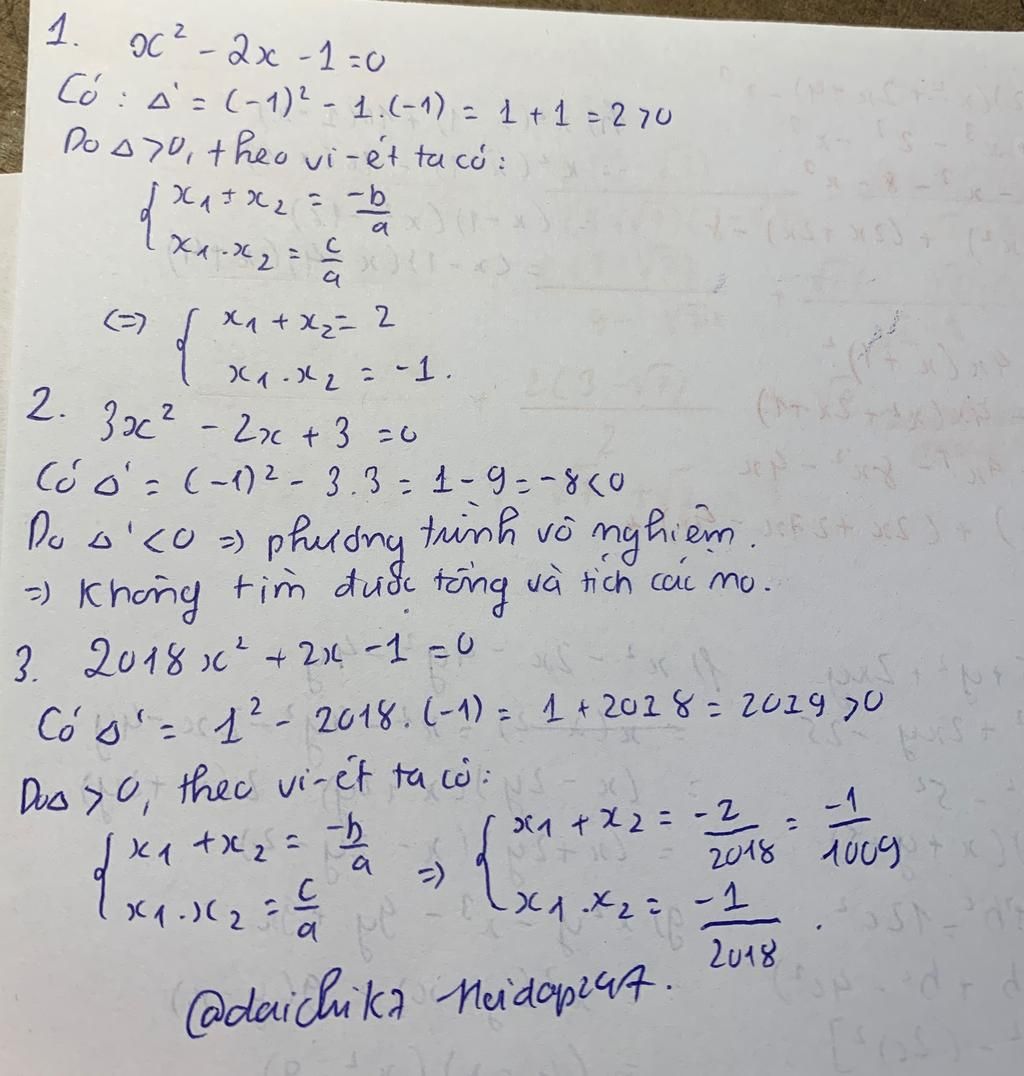 1. x² - 2x - 1 = 0
Có: Δ' = (-1)² - 1.(-1) = 1 + 1 = 2 > 0
Do Δ > 0, theo vi-ét ta có:
{ x₁ + x₂ = -b/a
x₁.x₂ = c/a
<=> { x₁ + x₂ = 2
x₁.x₂ = -1.
2. 3x² - 2x + 3 = 0
Có Δ' = (-1)² - 3.3 = 1 - 9 = -8 < 0
Do Δ' < 0 => phương trình vô nghiệm.
=> Không tìm được tổng và tích các no.
3. 2018x² + 2x - 1 = 0
Có Δ' = 1² - 2018.(-1) = 1 + 2018 = 2019 > 0
Do Δ > 0, theo vi-ét ta có:
{ x₁ + x₂ = -b/a => { x₁ + x₂ = -2/2018 = -1/1009
x₁.x₂ = c/a x₁.x₂ = -1/2018.